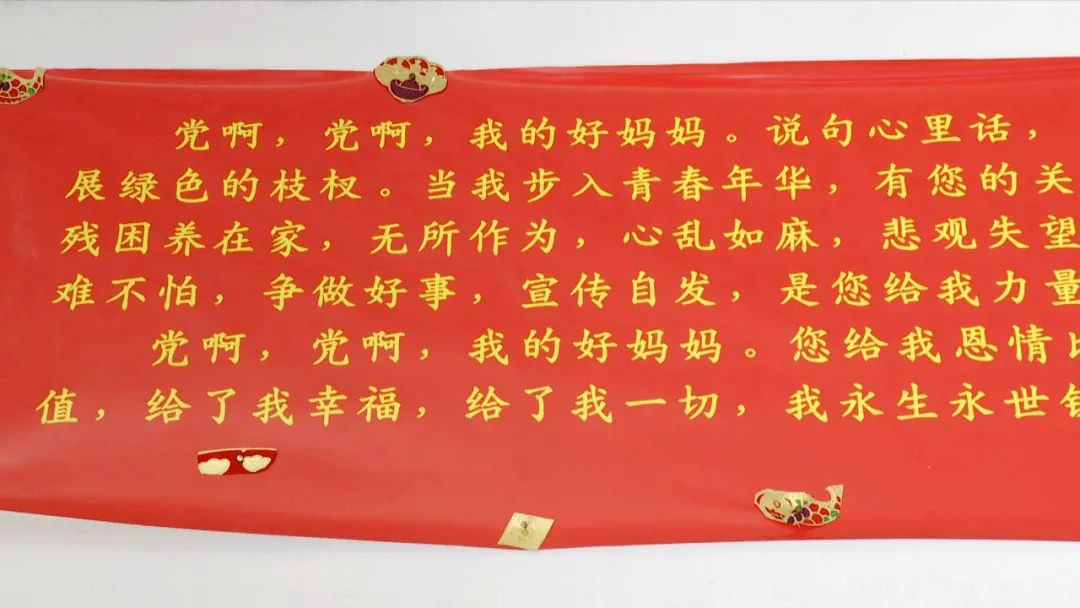 党啊，党啊，我的好妈妈。说句心里话，
展绿色的枝杈。当我步入青春年华，有您的关
残困养在家，无所作为，心乱如麻，悲观失望
难不怕，争做好事，宣传自发，是您给我力量
党啊，党啊，我的好妈妈。您给我恩情比
值，给了我幸福，给了我一切，我永生永世